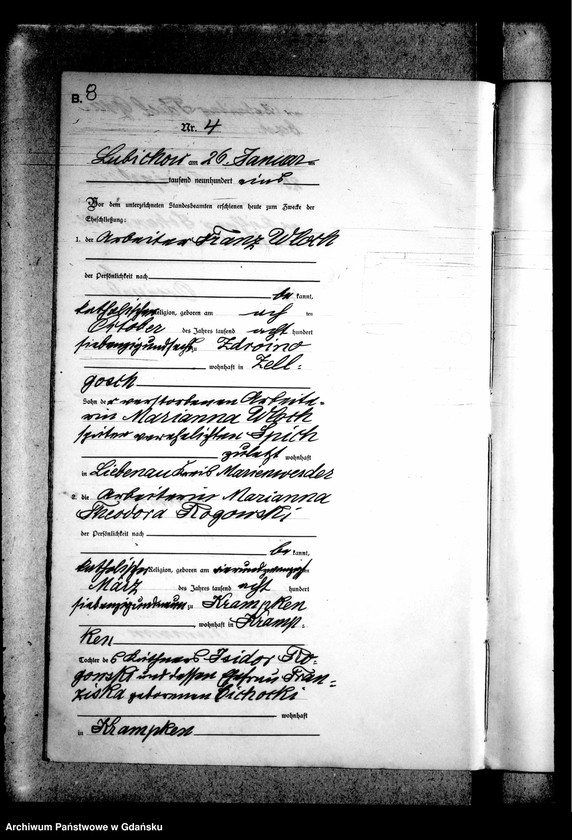 B. 8
Nr. 4
Lubichow am 26. Januar
tausend neunhundert eins
Vor dem unterzeichneten Standesbeamten erschienen heute zum Zwecke der
Eheschließung:
1. der Arbeiter Franz Wloch
der Persönlichkeit nach
be kannt,
katholischer Religion, geboren am ten
October des Jahres tausend acht hundert
siebenzigundsechs zu Zdroino
wohnhaft in Zell-
gosch
Sohn der verstorbenen Arbeite-
rin Marianna Wloch
später verehelichten Spich
zuletzt wohnhaft
in Liebenau Kreis Marienwerder
2. die Arbeiterin Marianna
Theodora Rogowski
der Persönlichkeit nach
be kannt,
katholischer Religion, geboren am vierundzwanzigsten
März des Jahres tausend acht hundert
siebenzigundneun zu Krampken
wohnhaft in Kramp-
ken
Tochter des Käthners Isidor Ro-
gowski und dessen Ehefrau Fran-
ziska geborenen Cichocki
wohnhaft
in Krampken
Archiwum Państwowe w Gdańsku